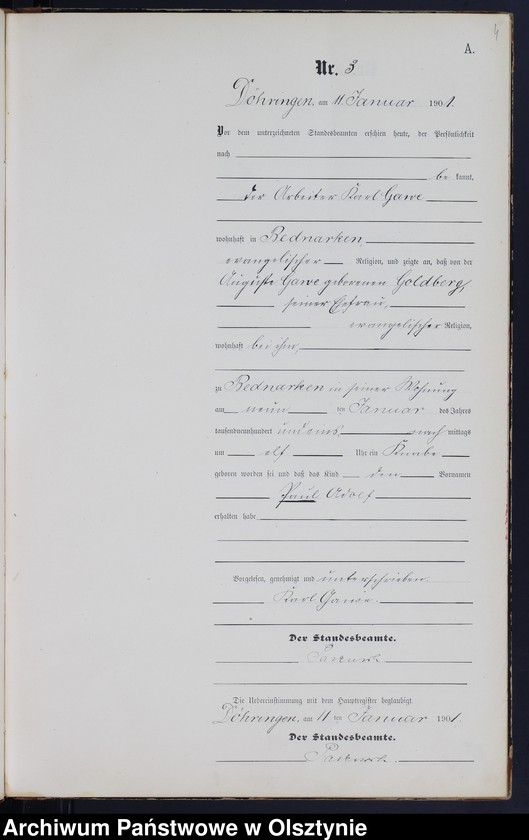 4
A.
Nr. 3
Döhringen, am 11. Januar 1901.
Vor dem unterzeichneten Standesbeamten erschien heute, der Persönlichkeit
nach
be kannt,
der Arbeiter Karl Gawe
wohnhaft in Bednarken
evangelischer Religion, und zeigte an, daß von der
Auguste Gawe geborenen Goldberg,
seiner Ehefrau,
evangelischer Religion,
wohnhaft bei ihm,
zu Bednarken in seiner Wohnung
am neun ten Januar des Jahres
tausendneunhundert und eins nach mittags
um elf Uhr ein Knabe
geboren worden sei und daß das Kind den Vornamen
Paul Adolf
erhalten habe
Vorgelesen, genehmigt und unterschrieben.
Karl Gawe.
Der Standesbeamte.
Die Uebereinstimmung mit dem Hauptregister beglaubigt.
Döhringen, am 11 ten Januar 1901.
Der Standesbeamte.
Archiwum Państwowe w Olsztynie